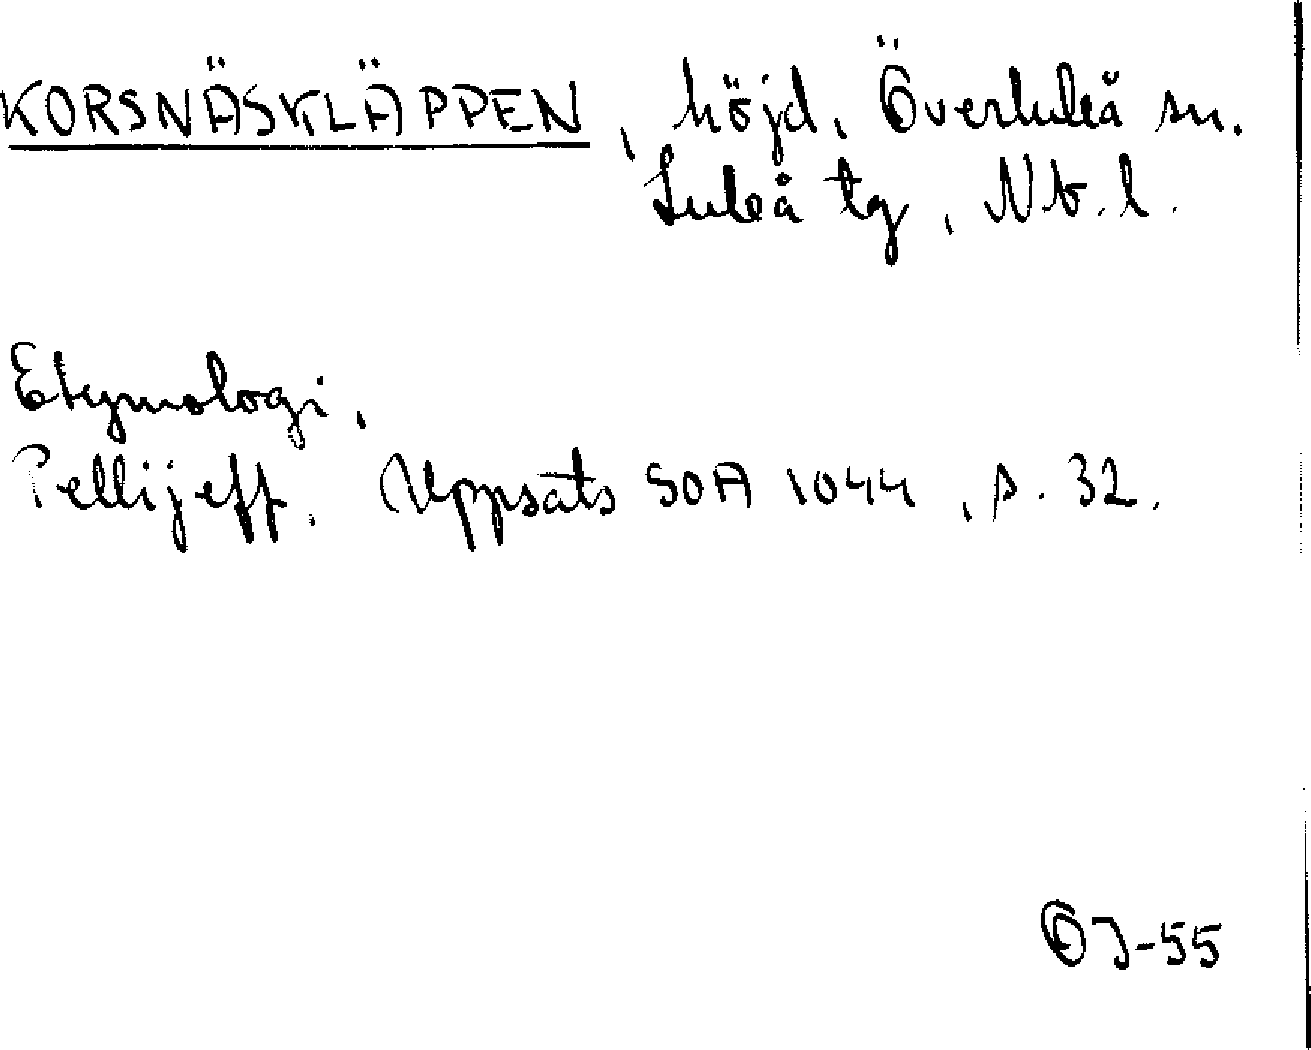 KORSNÄSKLÄPPEN, höjd, Överluleå sn.
Luleå tg, Nb. l.
Etymologi,
Pellijeff, Uppsats SOA 1044, s. 32.
OJ-55